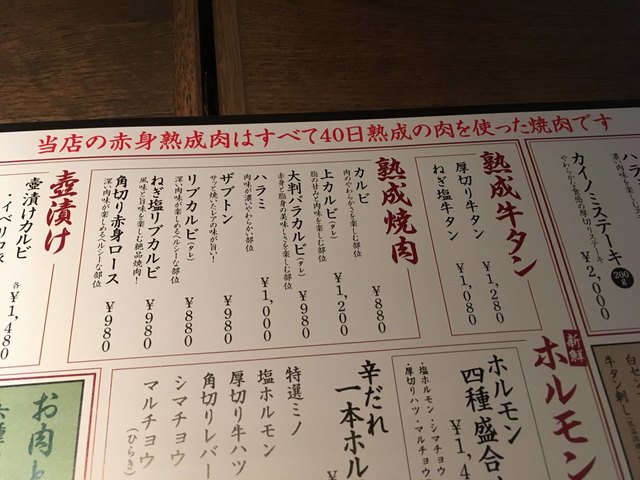 当店の赤身熟成肉はすべて40日熟成の肉を使った焼肉です
カイノミステーキ 200g ¥2,000
やわらかな食感の厚切りステーキ
熟成牛タン
厚切り牛タン ¥1,280
ねぎ塩牛タン ¥1,080
熟成焼肉
カルビ ¥880
肉のやわらかさを楽しむ部位
上カルビ(タレ) ¥1,200
脂の甘みと肉味を楽しむ部位
大判バラカルビ(タレ) ¥980
赤身と脂身の美味しさを楽しむ部位
ハラミ ¥1,000
味が濃いやわらかい部位
ザブトン ¥980
サッと焼いたレアの味が旨い!
リブカルビ(タレ) ¥880
深い肉味が楽しめるヘルシーな部位
ねぎ塩リブカルビ ¥980
風味と旨味を楽しむ絶品焼肉!
角切り赤身ロース ¥980
深い肉味が楽しめるヘルシーな部位
壺漬け
壺漬けカルビ
・イベリコ
各 ¥1,480
新鮮
ホルモン
ホルモン
四種盛合
¥1,4
・塩ホルモン・シマチョウ
・厚切りハツ・マルチョウ
辛だれ
一本ホル
特選ミノ
塩ホルモン
厚切り牛ハツ
角切りレバー
シマチョウ
マルチョウ
(ひらき)
白セ
牛タン刺し
お肉と
六種